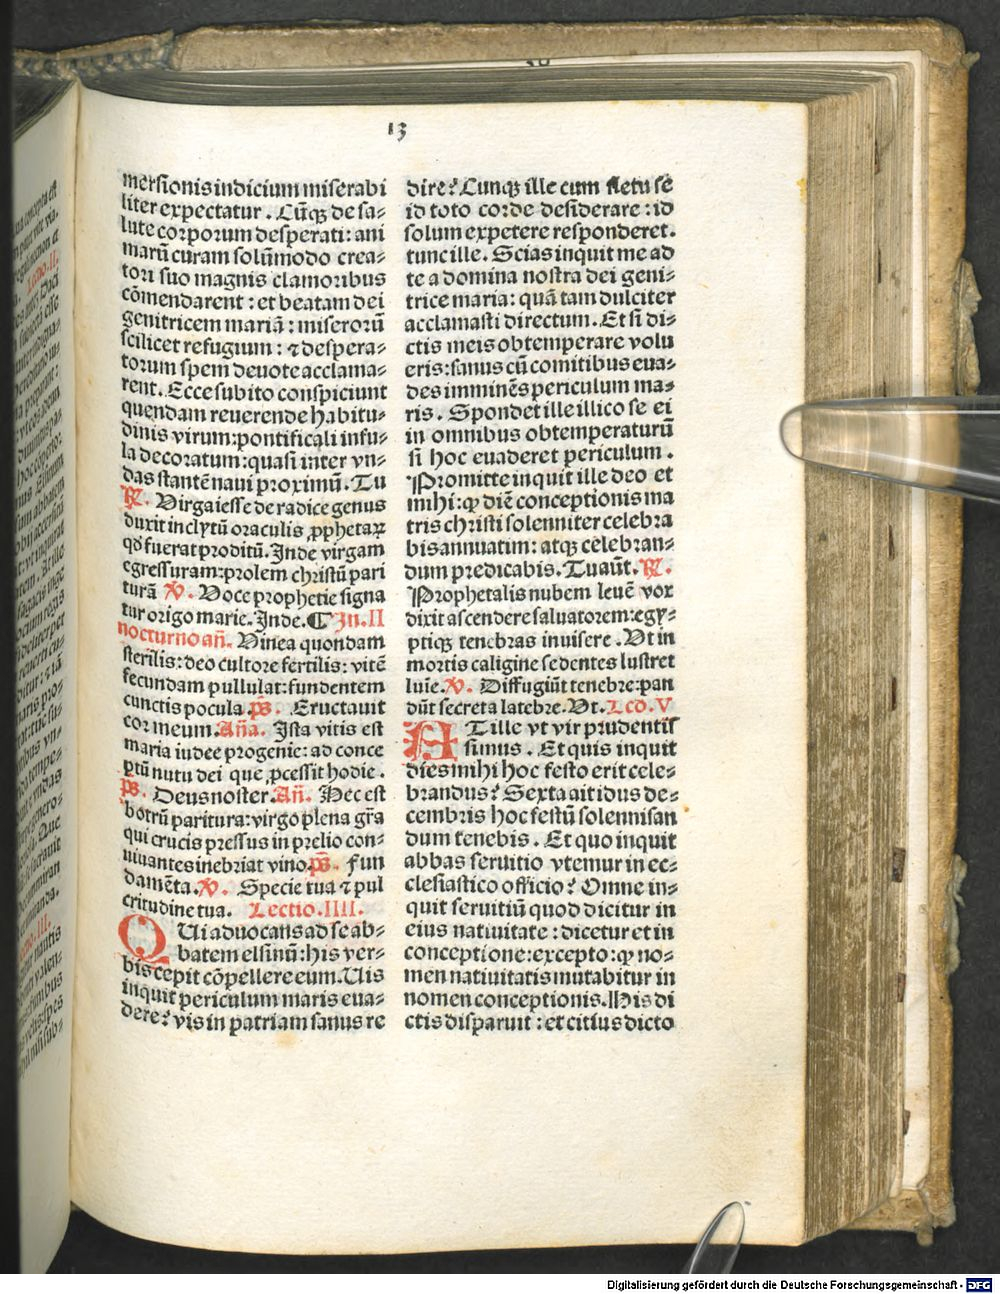 13
mersionis indicium miserabi
liter expectatur. Cũqꝫ de sa⸗
lute corporum desperati: ani
marũ curam solũmodo crea⸗
tori suo magnis clamoribus
cõmendarent: et beatam dei
genitricem mariã: miserorũ
scilicet refugium: ⁊ despera⸗
torum spem deuote acclama⸗
rent. Ecce subito conspiciunt
quendam reuerende habitu⸗
dinis virum: pontificali infu⸗
la decoratum: quasi inter vn⸗
das stantẽ naui proximũ. Tu
℟. Virga iesse de radice genus
duxit inclytũ oraculis ꝓphetaꝝ
qd̃ fuerat proditũ. Inde virgam
egressuram: prolem christũ pari
turã ℣. Voce prophetie signa
tur origo marie. Inde. ¶ In. II
nocturno añ. Vinea quondam
sterilis: deo cultore fertilis: vitẽ
fecundam pullulat: fundentem
cunctis pocula. p̃s. Eructauit
cor meum. Aña. Ista vitis est
maria iudee progenie: ad conce
ptũ nutu dei que ꝓcessit hodie.
p̃s. Deus noster. Añ. Hec est
botrũ paritura: virgo plena gr̃a
qui crucis pressus in prelio con⸗
uiuantes inebriat vino. p̃s. Fun
damẽta. ℣. Specie tua ⁊ pul
critudine tua. Lectio. IIII.
QUi aduocans ad se ab⸗
batem elsinũ: his ver⸗
bis cepit cõpellere eum. Uis
inquit periculum maris eua⸗
dere? vis in patriam sanus re
dire? Cunqꝫ ille cum fletu se
id toto corde desiderare: id
solum expetere responderet.
tunc ille. Scias inquit me ad
te a domina nostra dei geni⸗
trice maria: quã tam dulciter
acclamasti directum. Et si di⸗
ctis meis obtemperare volu
eris: sanus cũ comitibus eua⸗
des imminẽs periculum ma⸗
ris. Spondet ille illico se ei
in omnibus obtemperaturũ
si hoc euaderet periculum.
Promitte inquit ille deo et
mihi: ꝙ diẽ conceptionis ma
tris christi solenniter celebra
bis annuatim: atqꝫ celebran⸗
dum predicabis. Tu aũt. ℟.
Prophetalis nubem leuẽ vox
dixit ascendere saluatorem: egy⸗
ptiqꝫ tenebras inuisere. Vt in
mortis caligine sedentes lustret
luĩe. ℣. Diffugiũt tenebre: pan
dũt secreta latebre. Vt. Lcõ. V
AT ille vt vir prudentis
simus. Et quis inquit
dies mihi hoc festo erit cele⸗
brandus? Sexta ait idus de⸗
cembris hoc festũ solennisan
dum tenebis. Et quo inquit
abbas seruitio vtemur in ec⸗
clesiastico officio? Omne in⸗
quit seruitiũ quod dicitur in
eius natiuitate: dicetur et in
conceptione: excepto: ꝙ no⸗
men natiuitatis mutabitur in
nomen conceptionis. His di
ctis disparuit: et citius dicto
Digitalisierung gefördert durch die Deutsche Forschungsgemeinschaft - DFG